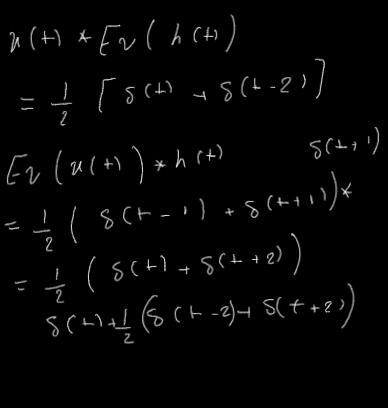 x(t) * Ev(h(t))
= 1/2 [δ(t) + δ(t-2)]
Ev(x(t)) * h(t) δ(t+1)
= 1/2 (δ(t-1) + δ(t+1)) *
= 1/2 (δ(t) + δ(t+2))
δ(t) + 1/2 (δ(t-2) + δ(t+2))